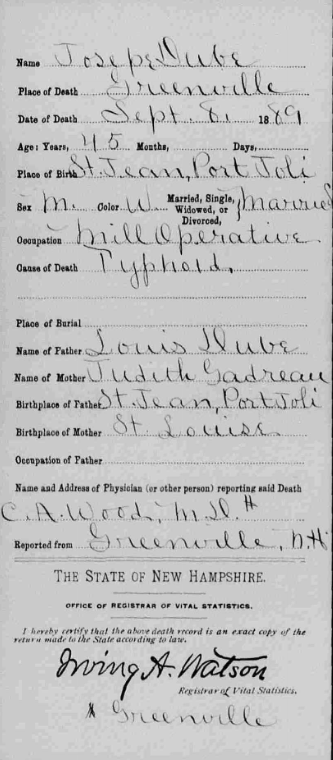 Name Joseph Dube
Place of Death Greenville
Date of Death Sept. 8, 1889
Age: Years, 45 Months, Days,
Place of Birth St. Jean, Port Joli
Sex M. Color W. Married, Single, Widowed, or Divorced, } Married
Occupation Mill Operative
Cause of Death Typhoid,
Place of Burial
Name of Father Louis Dube
Name of Mother Judith Gadreau
Birthplace of Father St. Jean, Port Joli
Birthplace of Mother St. Louise
Occupation of Father
Name and Address of Physician (or other person) reporting said Death
C. A. Wood, M. D. *
Reported from Greenville, N. H.
THE STATE OF NEW HAMPSHIRE.
OFFICE OF REGISTRAR OF VITAL STATISTICS.
I hereby certify that the above death record is an exact copy of the
return made to the State according to law.
Irving A. Watson
Registrar of Vital Statistics.
* Greenville